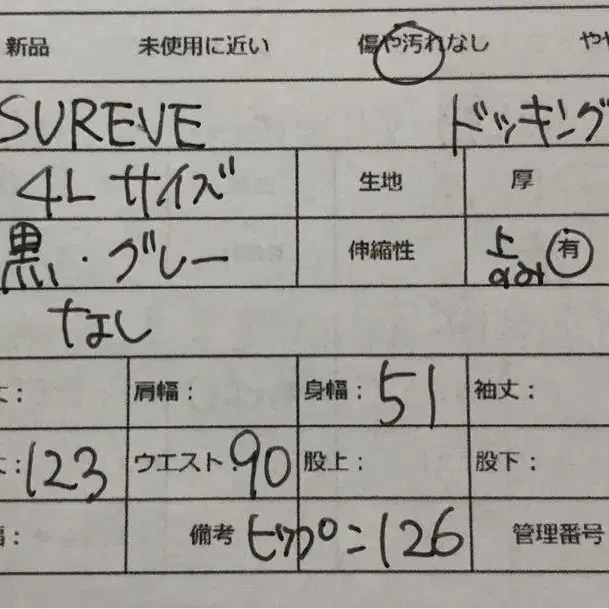 新品 未使用に近い 傷や汚れなし やや
SUREVE ドッキング
4Lサイズ 生地 厚
黒・グレー 伸縮性 上のみ 有
なし
丈: 肩幅: 身幅: 51 袖丈:
丈: 123 ウエスト: 90 股上: 股下:
幅: 備考 ヒップ=126 管理番号